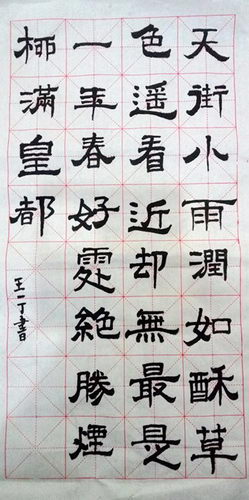 天街小雨潤如酥草
色遥看近却無最是
一年春好處絶勝煙
柳滿皇都
王一丁書